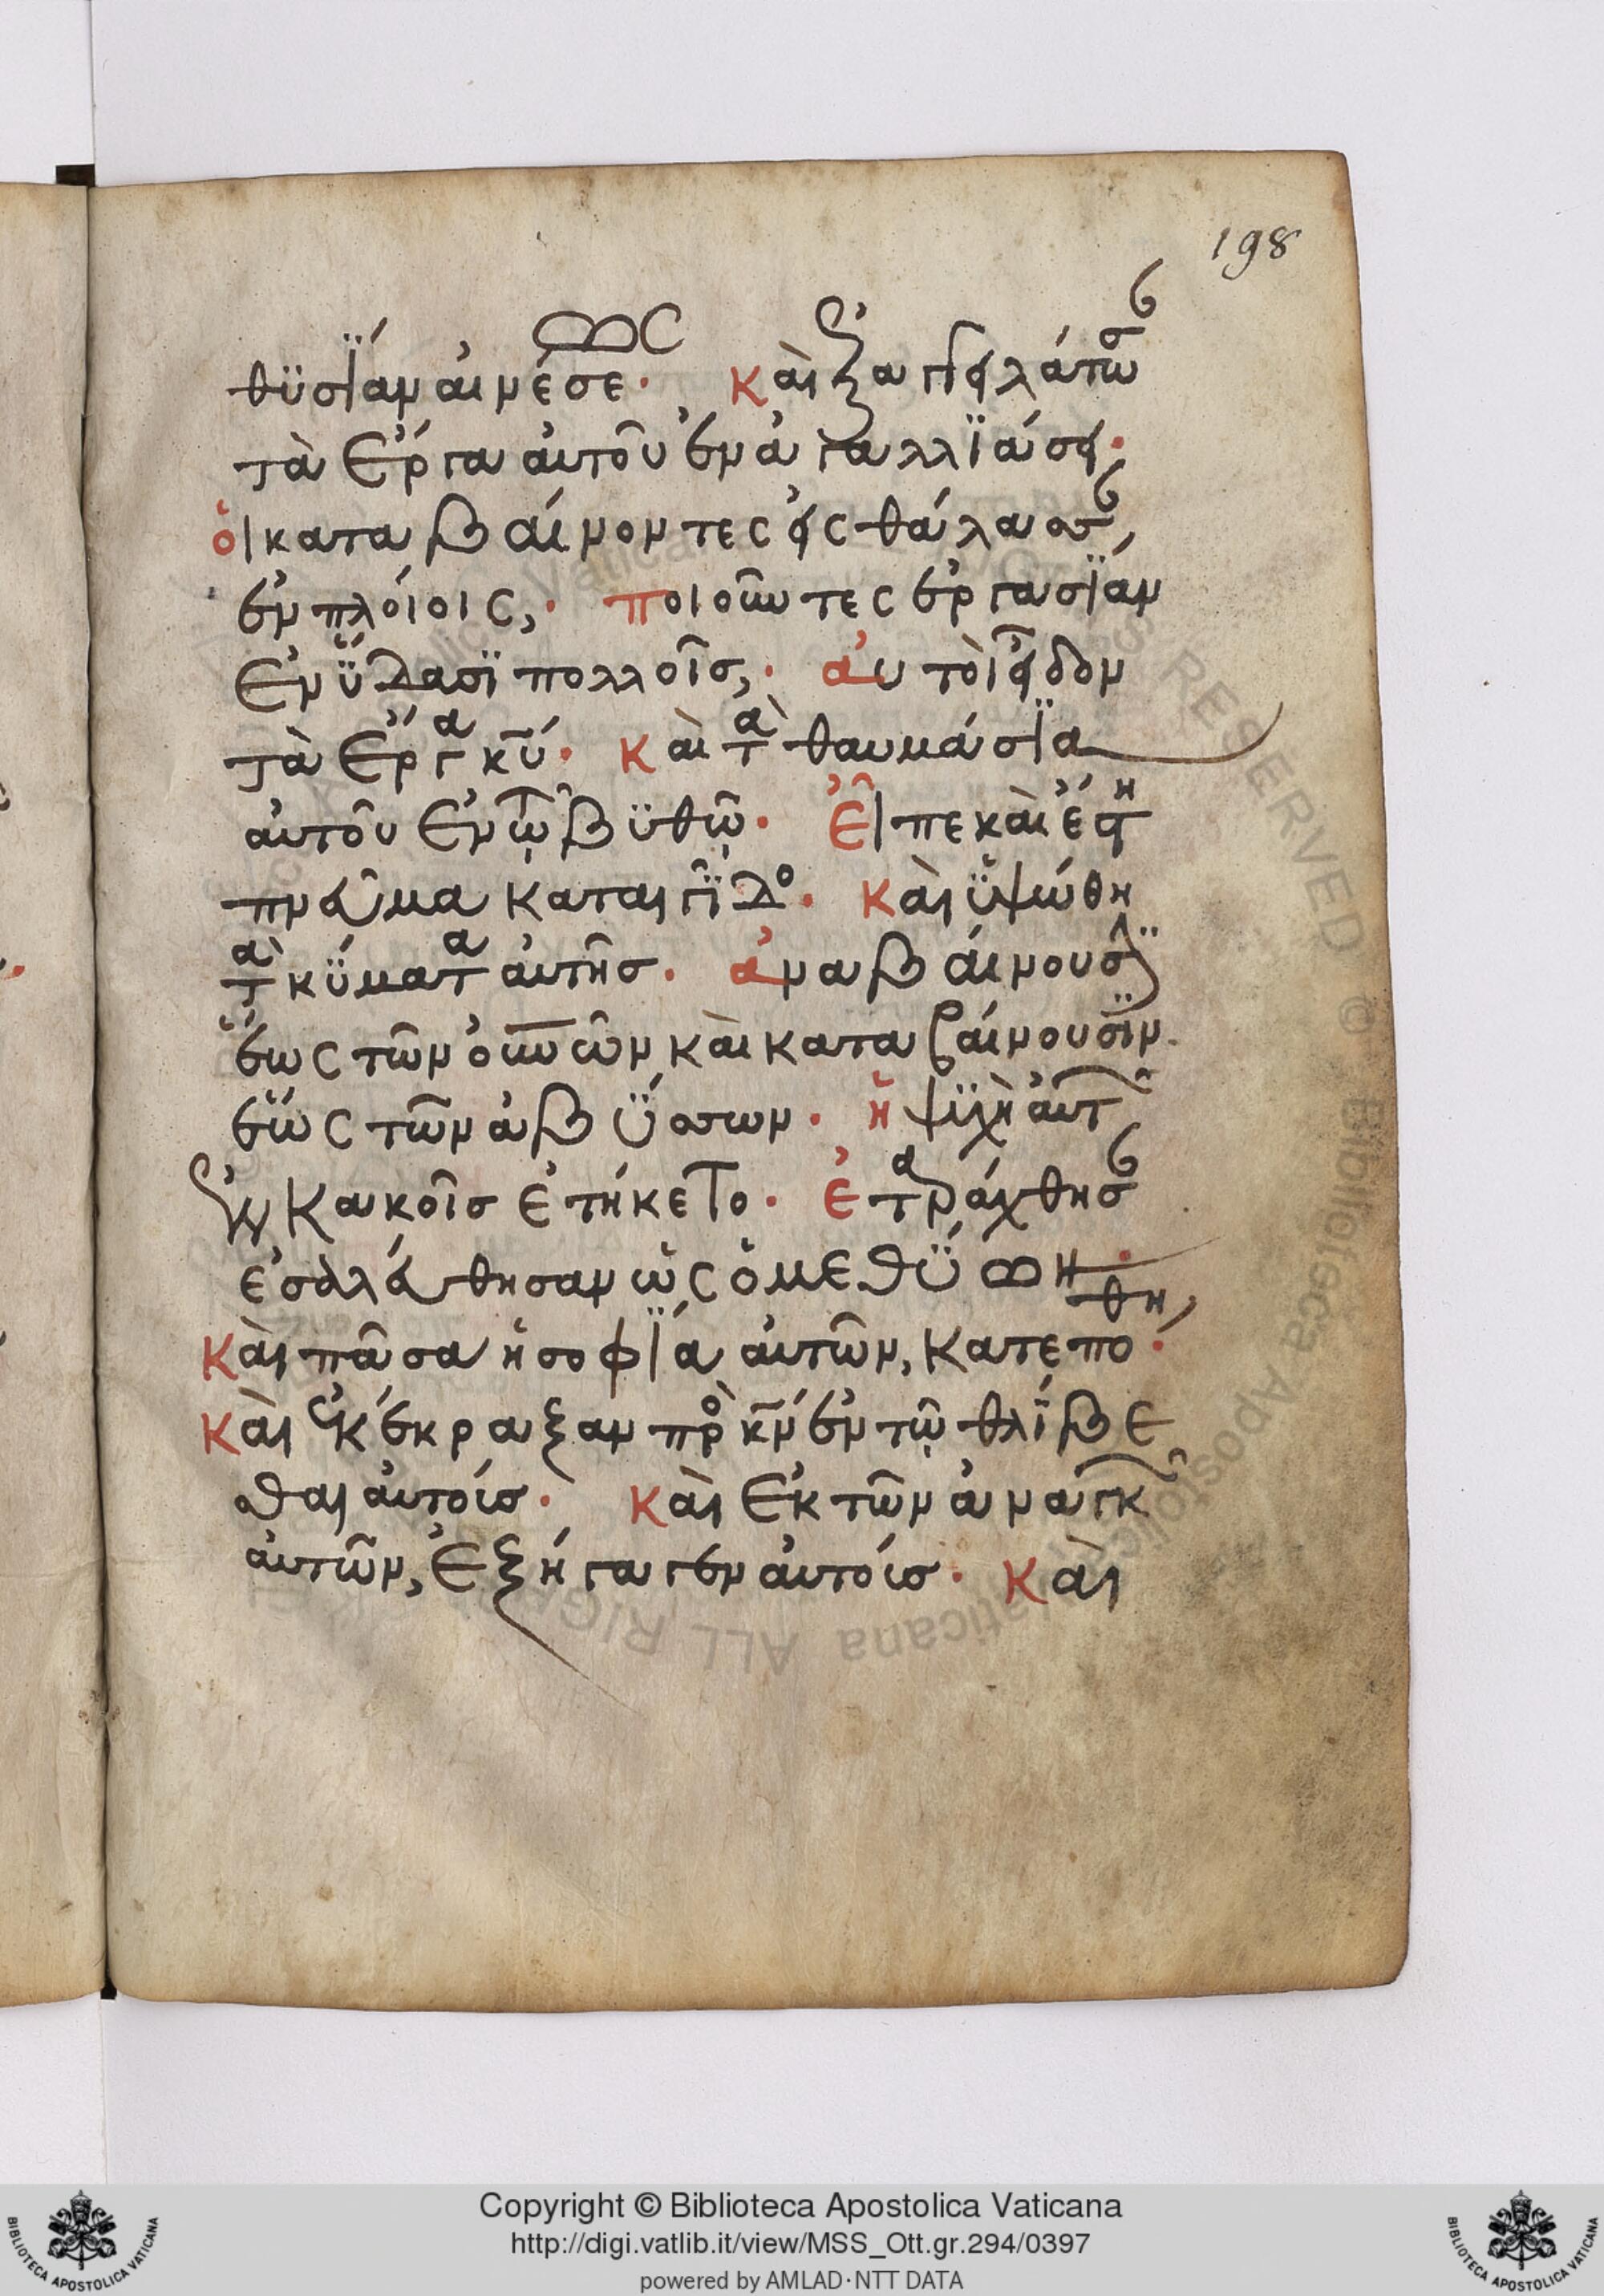 198
θϋσΐαν αινέσεως· Καὶ ἐξαγγειλάτωσαν
τὰ ἔργα αὐτοῦ ἐν ἀγαλλϊάσει·
ὁι καταβαίνοντες εἰς θάλασσαν,
ἐν πλοίοις,· ποιοῦντες ἐργασΐαν
ἐν ὕδασϊ πολλοῖς,· αὐτοὶ εἶδον
τὰ ἔργα κ̅υ̅· Καὶ τὰ θαυμάσϊα
αὐτοῦ ἐν τῷ βϋθῷ· Εἶπε καὶ ἔστη
πνεῦμα καταιγΐδος· Καὶ ὑψώθη
τὰ κύματα αὐτῆς· ἀναβαίνουσϊν
ἕως τῶν ο̅υ̅ν̅ῶν, καὶ καταβαίνουσϊν
ἕως τῶν ἀβύσσων· ἡ ψϋχὴ αὐτῶν
ἐν κακοῖς ἐτήκετο· ἐταράχθησαν
ἐσαλεύθησαν ὡς ὁ μεθύων·
Καὶ πᾶσα ἡ σοφΐα αὐτῶν, κατεπόθη,
Καὶ ἐκέκραξαν πρὸς κ̅ν̅ ἐν τῷ θλίβε
σθαι αὐτούς· Καὶ ἐκ τῶν ἀναγκῶν
αὐτῶν, ἐξήγαγεν αὐτούς· Καὶ
Copyright © Biblioteca Apostolica Vaticana
http://digi.vatlib.it/view/MSS_Ott.gr.294/0397
powered by AMLAD·NTT DATA
BIBLIOTECA APOSTOLICA VATICANA
BIBLIOTECA APOSTOLICA VATICANA